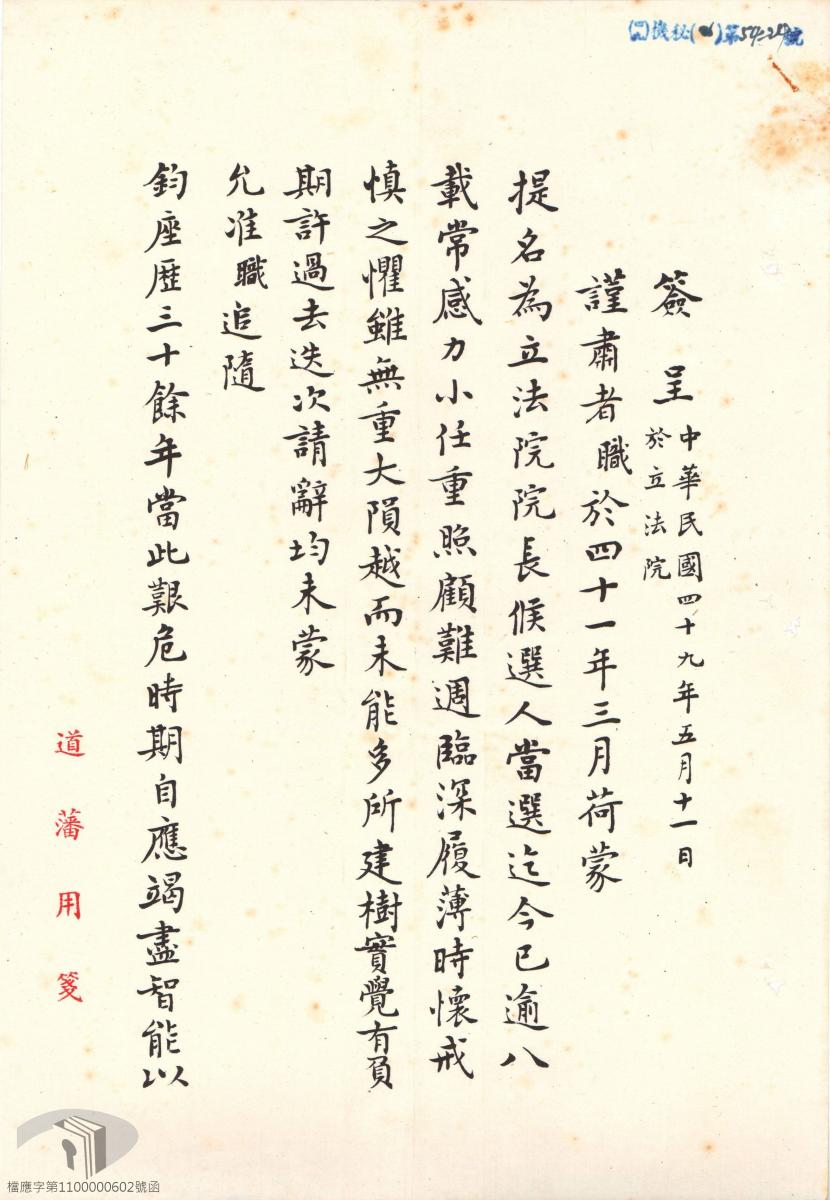 機秘(乙)第54-219號
簽呈 中華民國四十九年五月十一日
於立法院
謹肅者職於四十一年三月荷蒙
提名為立法院院長候選人當選迄今已逾八
載常感力小任重照顧難週臨深履薄時懷戒
慎之懼雖無重大隕越而未能多所建樹實覺有負
期許過去迭次請辭均未蒙
允准職追隨
鈞座歷三十餘年當此艱危時期自應竭盡智能以
道藩用箋
檔應字第1100000602號函